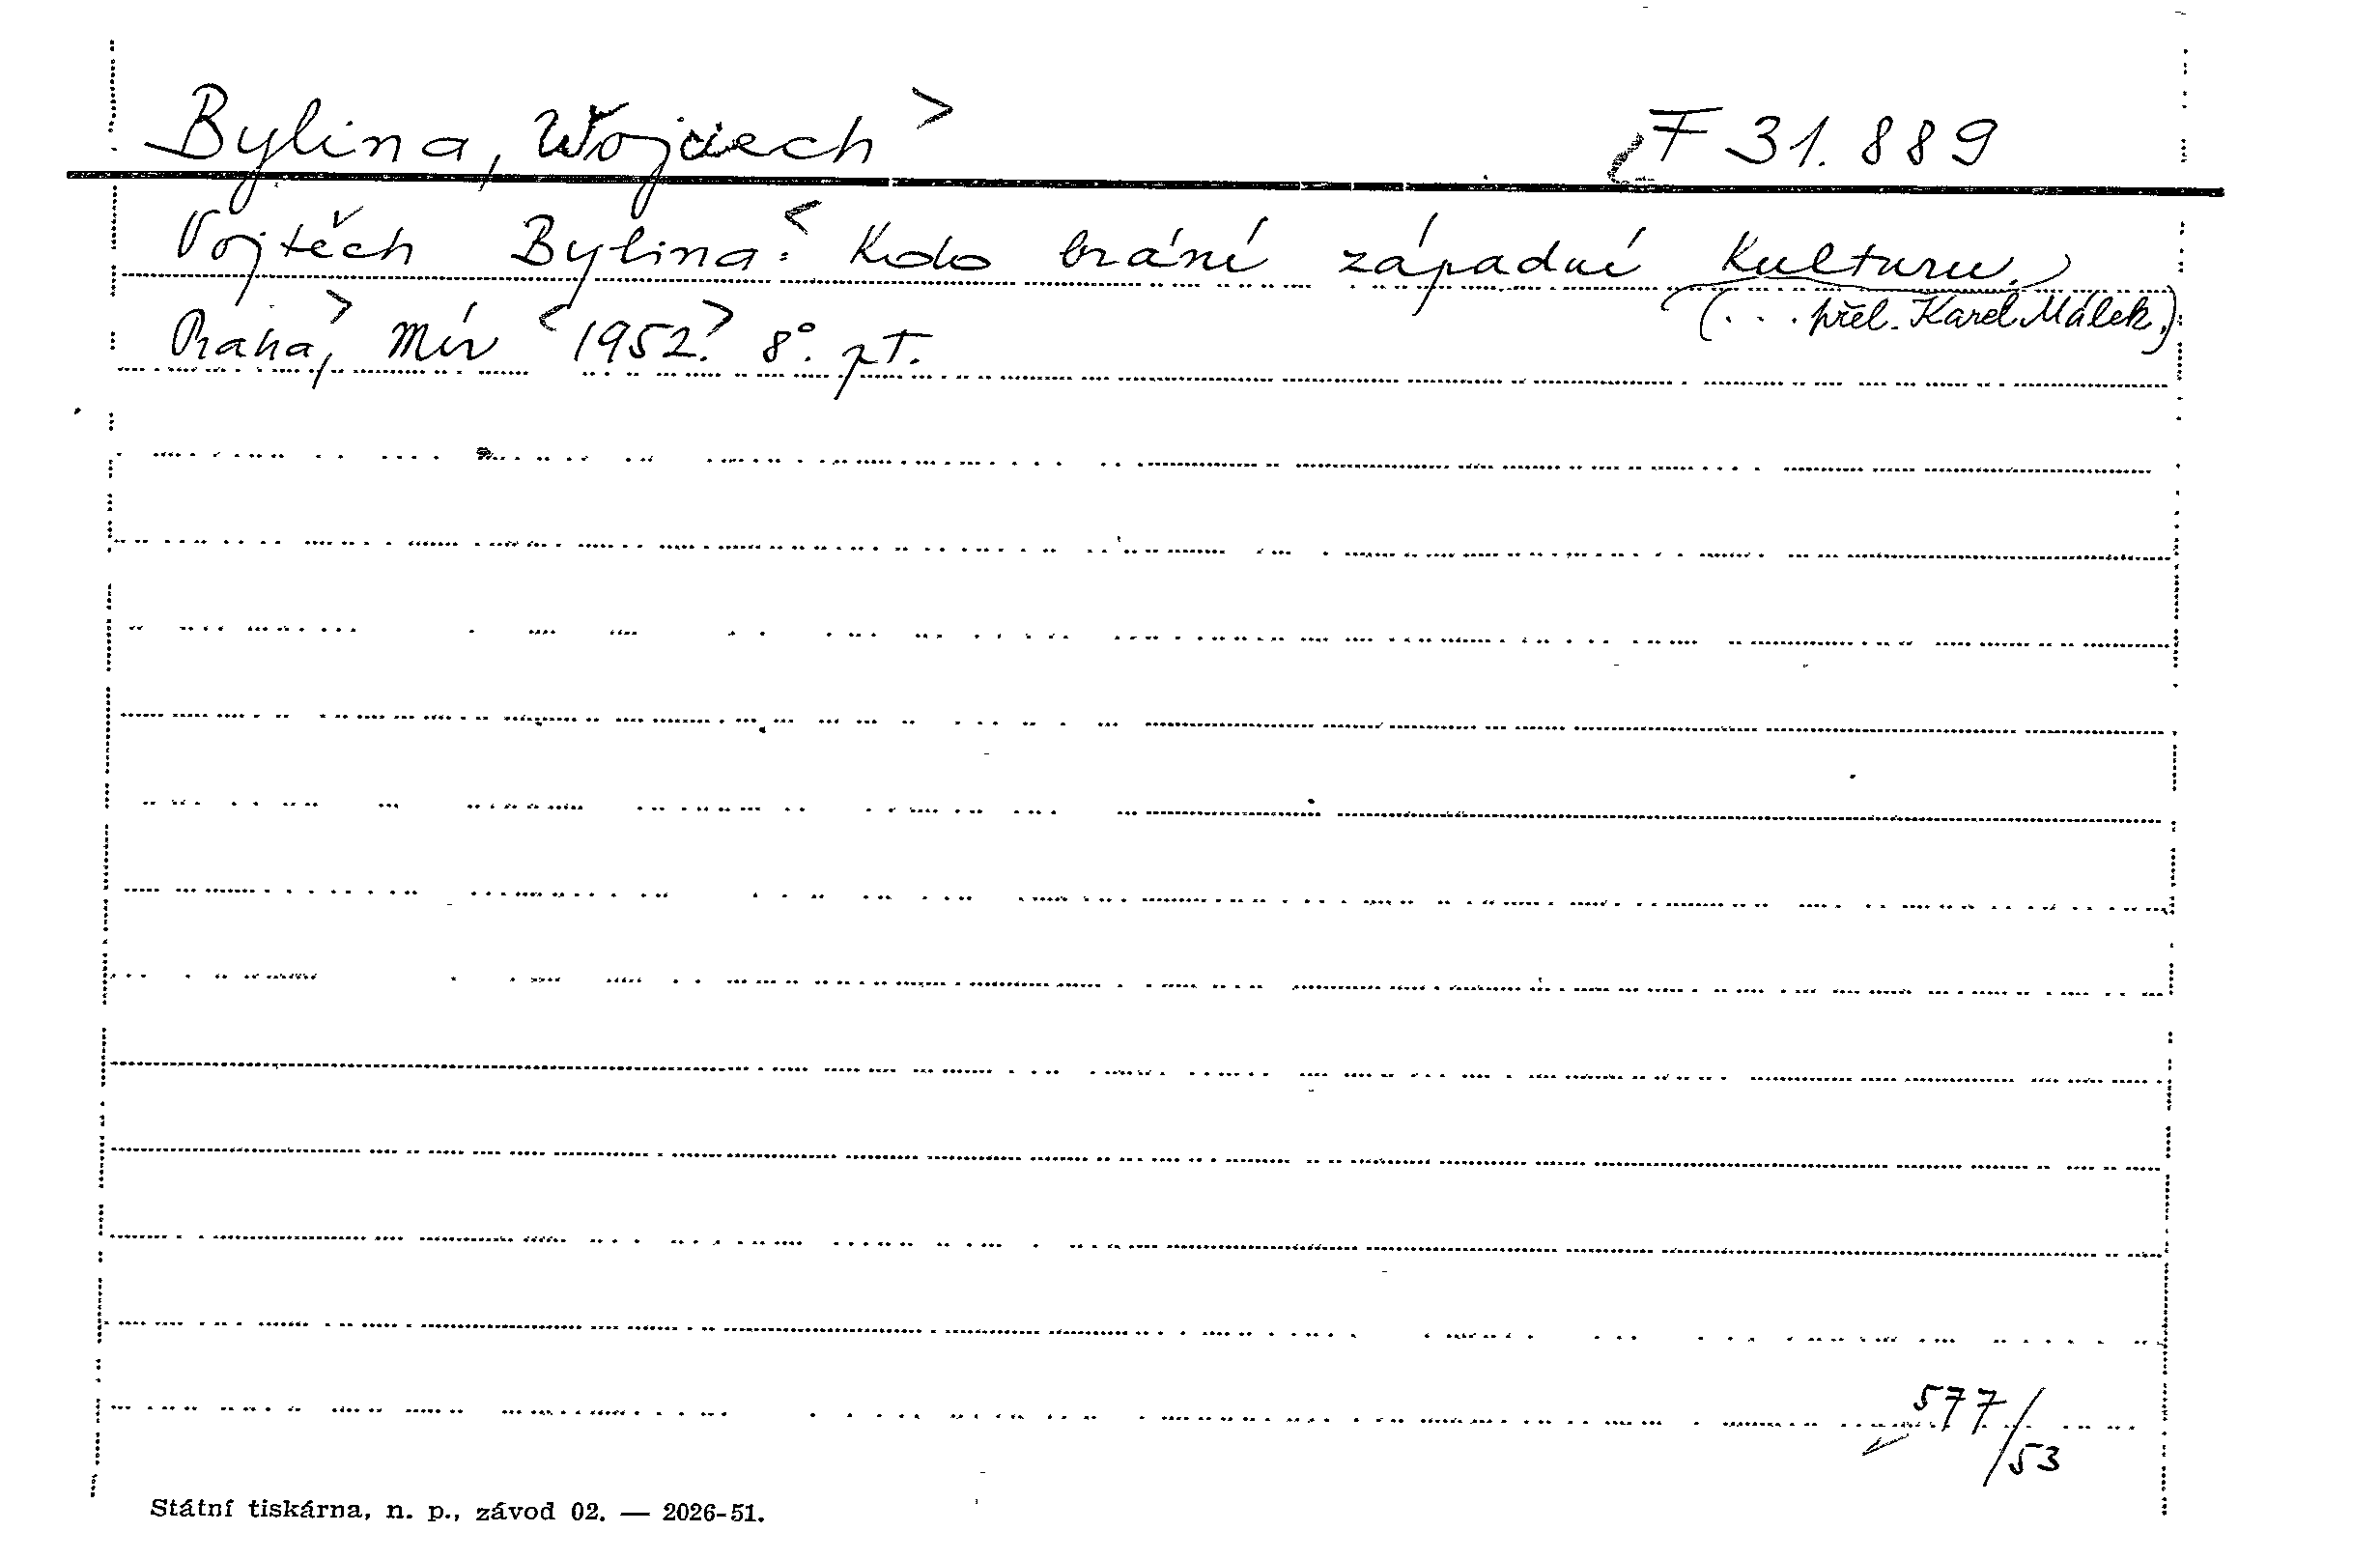 Bylina, Wojciech> F 31.889
Vojtěch Bylina:< Kdo brání západní kulturu.
(. . . přel. Karel Málek.)
Praha,> Mír <1952.> 8°. pT.
577/53
Státní tiskárna, n. p., závod 02. — 2026-51.